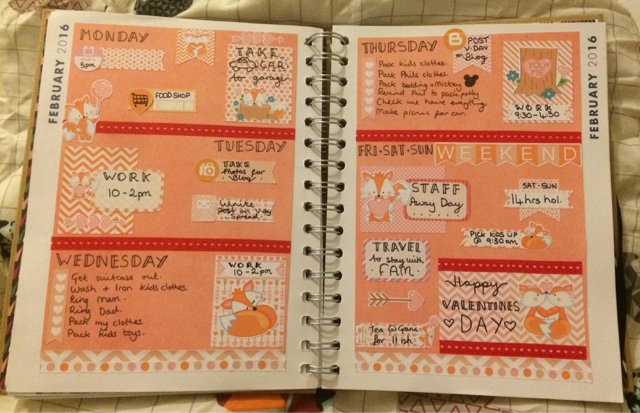 FEBRUARY 2016
MONDAY
5pm
FOOD SHOP
TAKE
CAR
to garage
TUESDAY
WORK
10-2pm
TAKE
Photos for
Blog.
Write
post on V-day
Spread.
WEDNESDAY
Get suitcase out.
Wash + Iron kids clothes.
Ring Mam.
Ring Dad.
Pack my clothes.
Pack kids toys.
WORK
10-2pm
THURSDAY
B POST
V-DAY
on Blog
Pack kids clothes.
Pack Phils clothes.
Pack bedding + Mickey
Remind Phil to pack potty
Check we have everything.
Make picnic for car.
YOU
ME
WORK
9:30-4:30
FEBRUARY 2016
FRI·SAT·SUN
WEEKEND
STAFF
Away Day
SAT·SUN
14hrs hol.
PICK KIDS UP
@ 9:30am
TRAVEL
to stay with
FAM.
Happy
VALENTINES
DAY
Tea @
for 11ish